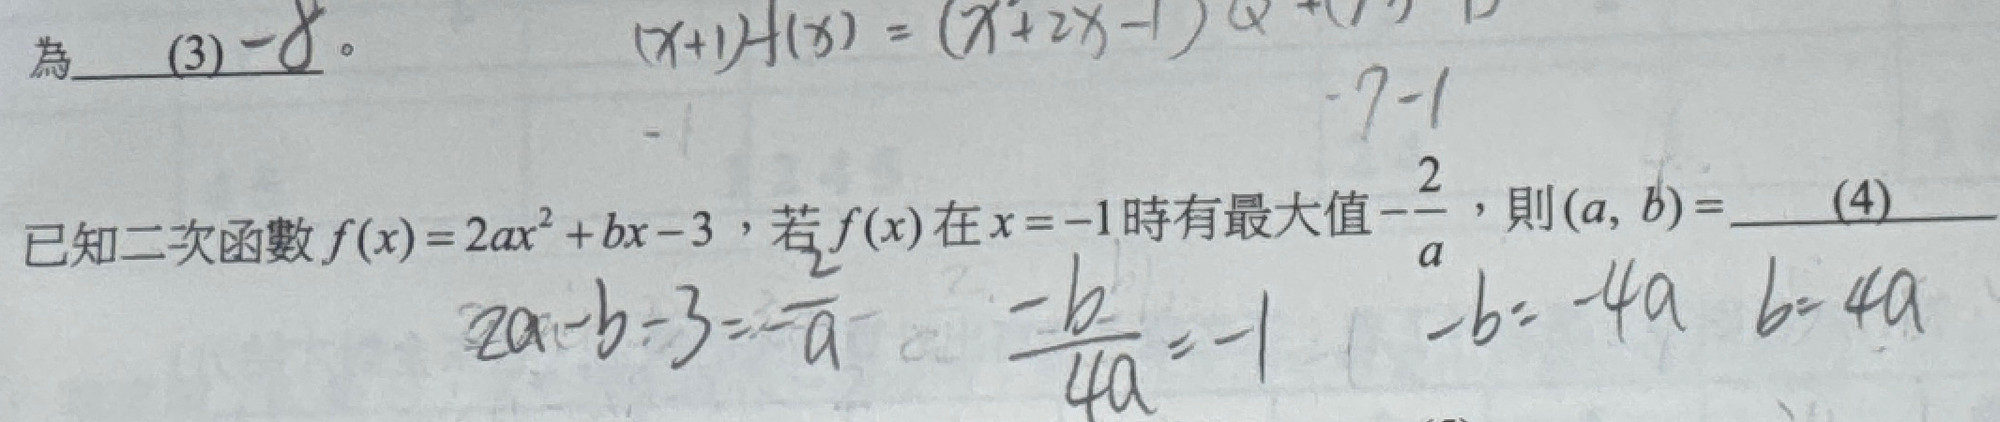 (x+1)f(x) = (x²+2x-1)Q +
為 (3) -8 。
-7-1
-1
已知二次函數 f(x) = 2ax² + bx − 3，若 f(x) 在 x = −1 時有最大值 −2/a，則 (a, b) = (4)
2a-b-3=-2/a -b/4a=-1 -b=-4a b=4a